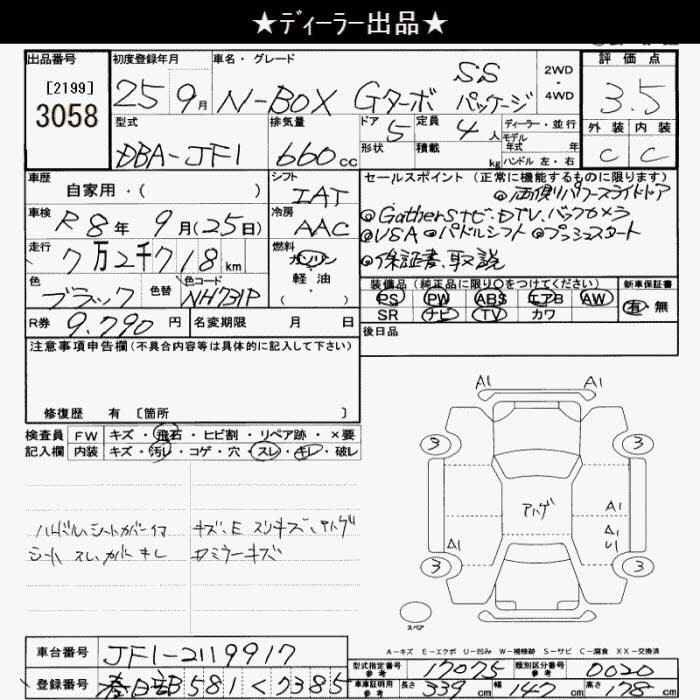 ★ディーラー出品★
出品番号 初度登録年月 車名・グレード 評価点
[2199]
3058
25 9月 N-BOX Gターボ SSパッケージ 2WD・4WD 3.5
型式 排気量 ドア 5 定員 4人 ディーラー・並行 外装 内装
DBA-JF1 660cc 形状 積載 kg モデル年式 年 ハンドル 左・右 C C
車歴 自家用・( ) シフト IAT セールスポイント (正常に機能するものに限ります)
◎両側パワースライドドア
車検 R8年 9月(25日) 冷房 AAC ◎Gathersナビ.DTV.バックカメラ
◎VSA ◎パドルシフト ◎プッシュスタート
走行 7万2千718km 燃料 ガソリン・軽油・( ) ◎保証書、取説
色 ブラック 色替 色コード NH731P 装備品 (純正品に限り○をつけてください) 新車保証書
PS PW ABS エアB AW 有・無
R券 9.790円 名変期限 月 日 SR ナビ TV カワ
注意事項申告欄(不具合内容等は具体的に記入して下さい) 後日品
修復歴 有 〔箇所 〕
検査員 FW キズ・飛石・ヒビ割・リペア跡・×要
記入欄 内装 キズ・汚レ・コゲ・穴・スレ・キレ・破レ
A1 A1
3 3
アハゲ
A1
A1 A1
U1
3 3
スペア
キズ.E スリキズ.アハゲ
シート スレ
ドアミラーキズ
A-キズ E-エクボ U-凹み W-補修跡 S-サビ C-腐食 XX-交換済
車台番号 JF1-2119917
型式指定番号 参考 17075 類別区分番号 参考 0020
登録番号 春日部581く7385 車庫証明用 参考 長さ339cm 幅147cm 高さ178cm